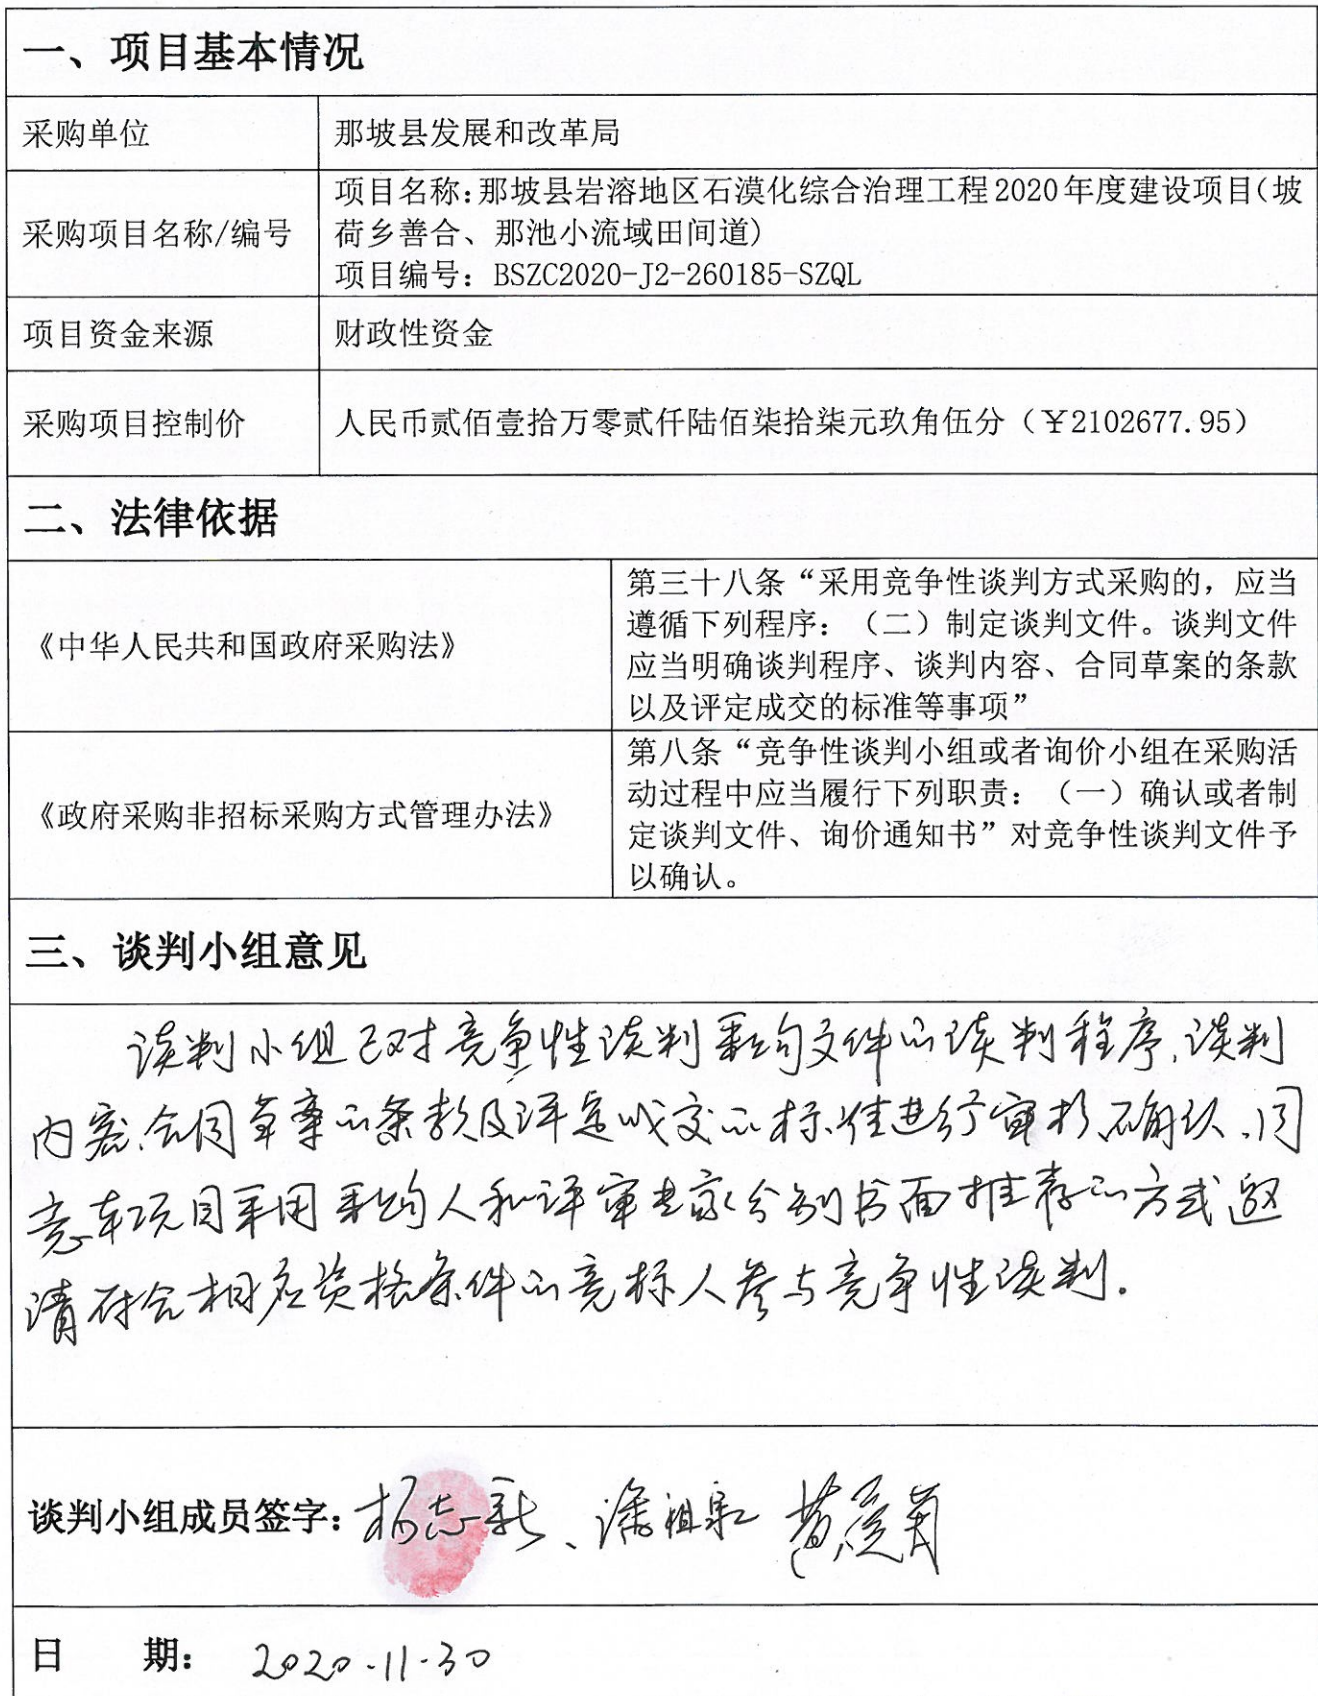 一、项目基本情况
采购单位
那坡县发展和改革局
采购项目名称/编号
项目名称:那坡县岩溶地区石漠化综合治理工程2020年度建设项目(坡
荷乡善合、那池小流域田间道)
项目编号：BSZC2020-J2-260185-SZQL
项目资金来源
财政性资金
采购项目控制价
人民币贰佰壹拾万零贰仟陆佰柒拾柒元玖角伍分（￥2102677.95）
二、法律依据
《中华人民共和国政府采购法》
第三十八条“采用竞争性谈判方式采购的，应当
遵循下列程序：（二）制定谈判文件。谈判文件
应当明确谈判程序、谈判内容、合同草案的条款
以及评定成交的标准等事项”
《政府采购非招标采购方式管理办法》
第八条“竞争性谈判小组或者询价小组在采购活
动过程中应当履行下列职责：（一）确认或者制
定谈判文件、询价通知书”对竞争性谈判文件予
以确认。
三、谈判小组意见
谈判小组已对竞争性谈判采购文件的谈判程序、谈判
内容、合同草案的条款及评定成交的标准进行审核、确认、同
意本项目采用采购人和评审专家分别书面推荐的方式邀
请符合相应资格条件的竞标人参与竞争性谈判。
谈判小组成员签字：杨志新、潘祖
日 期： 2020.11.30